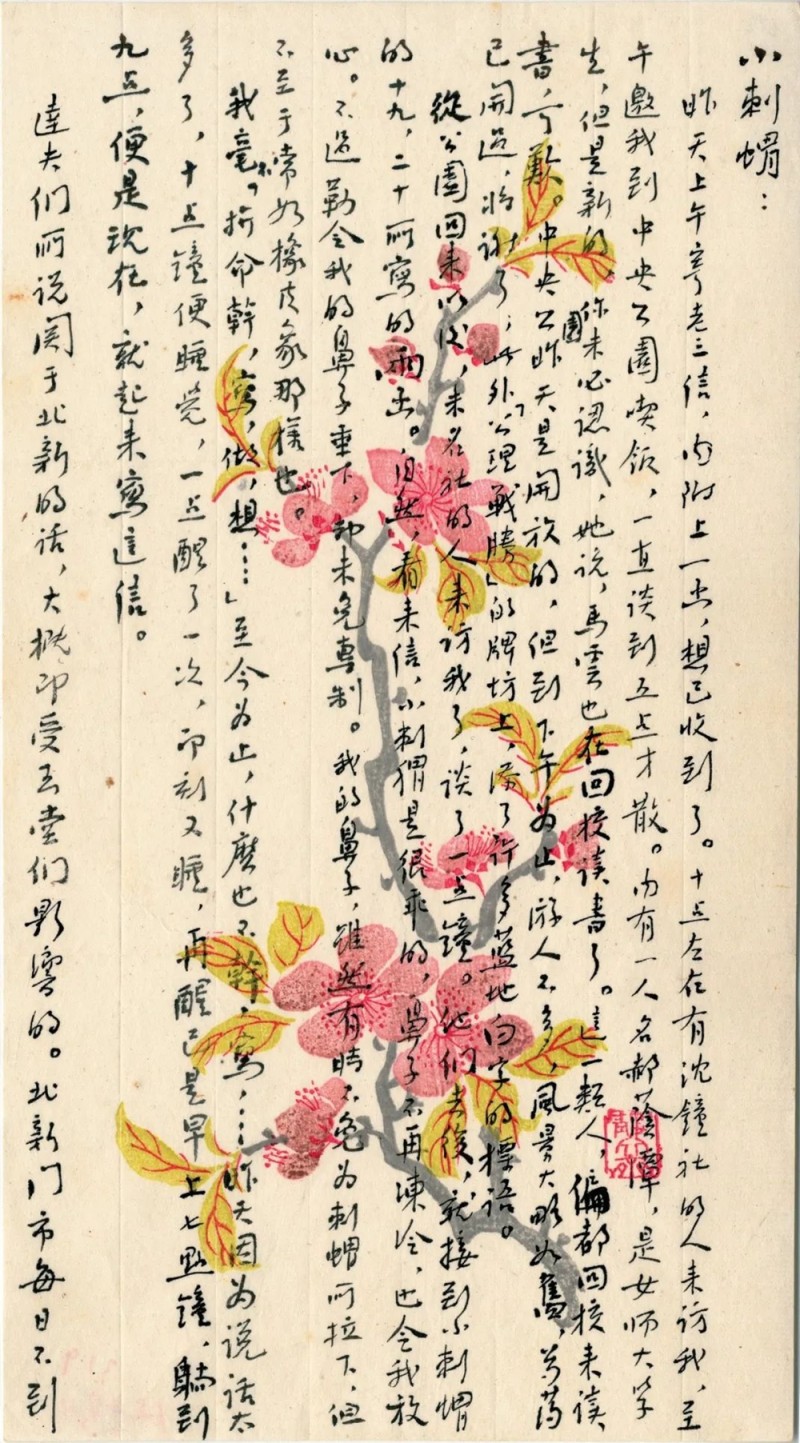 小刺蝟：
昨天上午寄老三信，内附上一出，想已收到了。十点左右有沈鐘社的人来访我，至
午邀我到中央公園喫饭，一直谈到五点才散。内有一人名郝蔭潭，是女师大学
生，但是新的，你未必認識，她说，馬雲也在回校读書了。這一類人，偏都回校来读
書，可歎。中央公園昨天是開放的，但到下午为止，游人不多，風景大略如舊，芍药
已開过，将謝了，此外「公理戰勝」的牌坊上，添了许多蓝地白字的標语。
從公園回来以后，未名社的人来访我了，谈了一点鐘。他们去後，就接到小刺蝟
的十九，二十所寫的两函。自然，看来信，小刺猬是很乖的，鼻子不再凍冷，也令我放
心。不过勒令我的鼻子垂下，却未免專制。我的鼻子，雖然有時不免为刺蝟所拉下，但
不至于常如橡皮象那様也。
我毫不「拚命幹，寫，做，想……」至今为止，什麽也不幹，寫，……昨天因为说话太
多了，十点鐘便睡觉，一点醒了一次，即刻又睡，再醒已是早上七點鐘，躺到
九点，便是现在，就起来寫這信。
達夫们所说関于北新的话，大概即受玉堂们影響的。北新门市每日不到